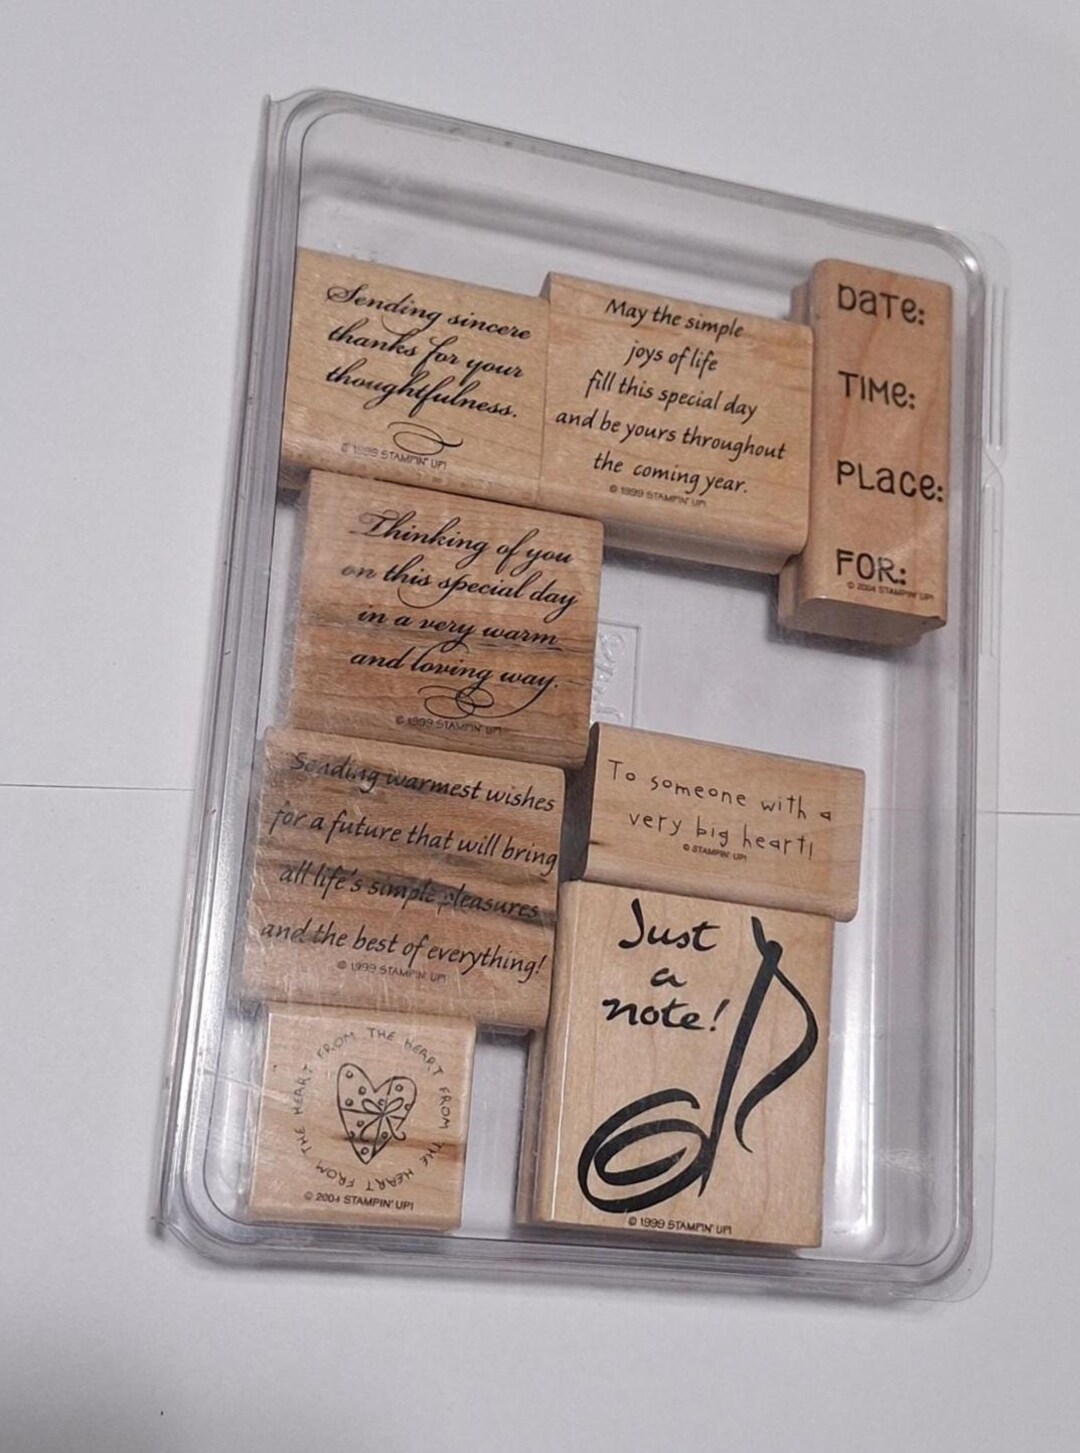 Sending sincere
thanks for your
thoughtfulness.
© 1999 STAMPIN' UP!
May the simple
joys of life
fill this special day
and be yours throughout
the coming year.
© 1999 STAMPIN' UP!
DaTe:
TIMe:
PLace:
FOR:
© 2004 STAMPIN' UP!
Thinking of you
on this special day
in a very warm
and loving way.
© 1999 STAMPIN' UP!
Sending warmest wishes
for a future that will bring
all life's simple pleasures
and the best of everything!
© 1999 STAMPIN' UP!
To someone with a
very big heart!
© STAMPIN' UP!
Just
a
note!
© 1999 STAMPIN' UP!
FROM THE HEART FROM THE HEART FROM THE HEART
© 2004 STAMPIN' UP!